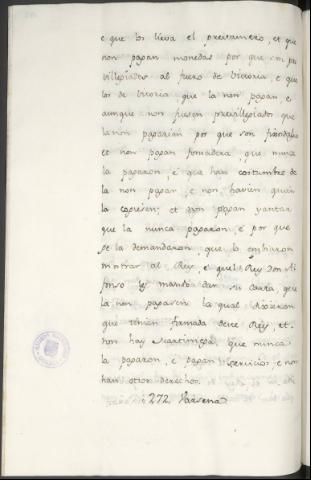 e que los lieva el prestamero, et que
non papan monedas por que son pri
villegiados al fuero de Victoria, e que
los de Vitoria que la non papan, e
aunque non fuesen previllegiados que
la non paparian por que son fijosdalgo
et non papan fonsadera, que nunca
la paparon, e que han costumbre de
la non papar, e non havien quien
la copiesen; et non papan yantar
que la nunca paparon, e por que
se la demandaron que lo embiaron
mostrar al Rey, e quel Rey Don Al
fonso les mandó dar su carta, que
la non papasen la qual dixieron
que tenien firmada deste Rey, et
non hay Martiniega, que nunca
la paparon, e papan servicios, e non
han otros derechos.
272 Narsena